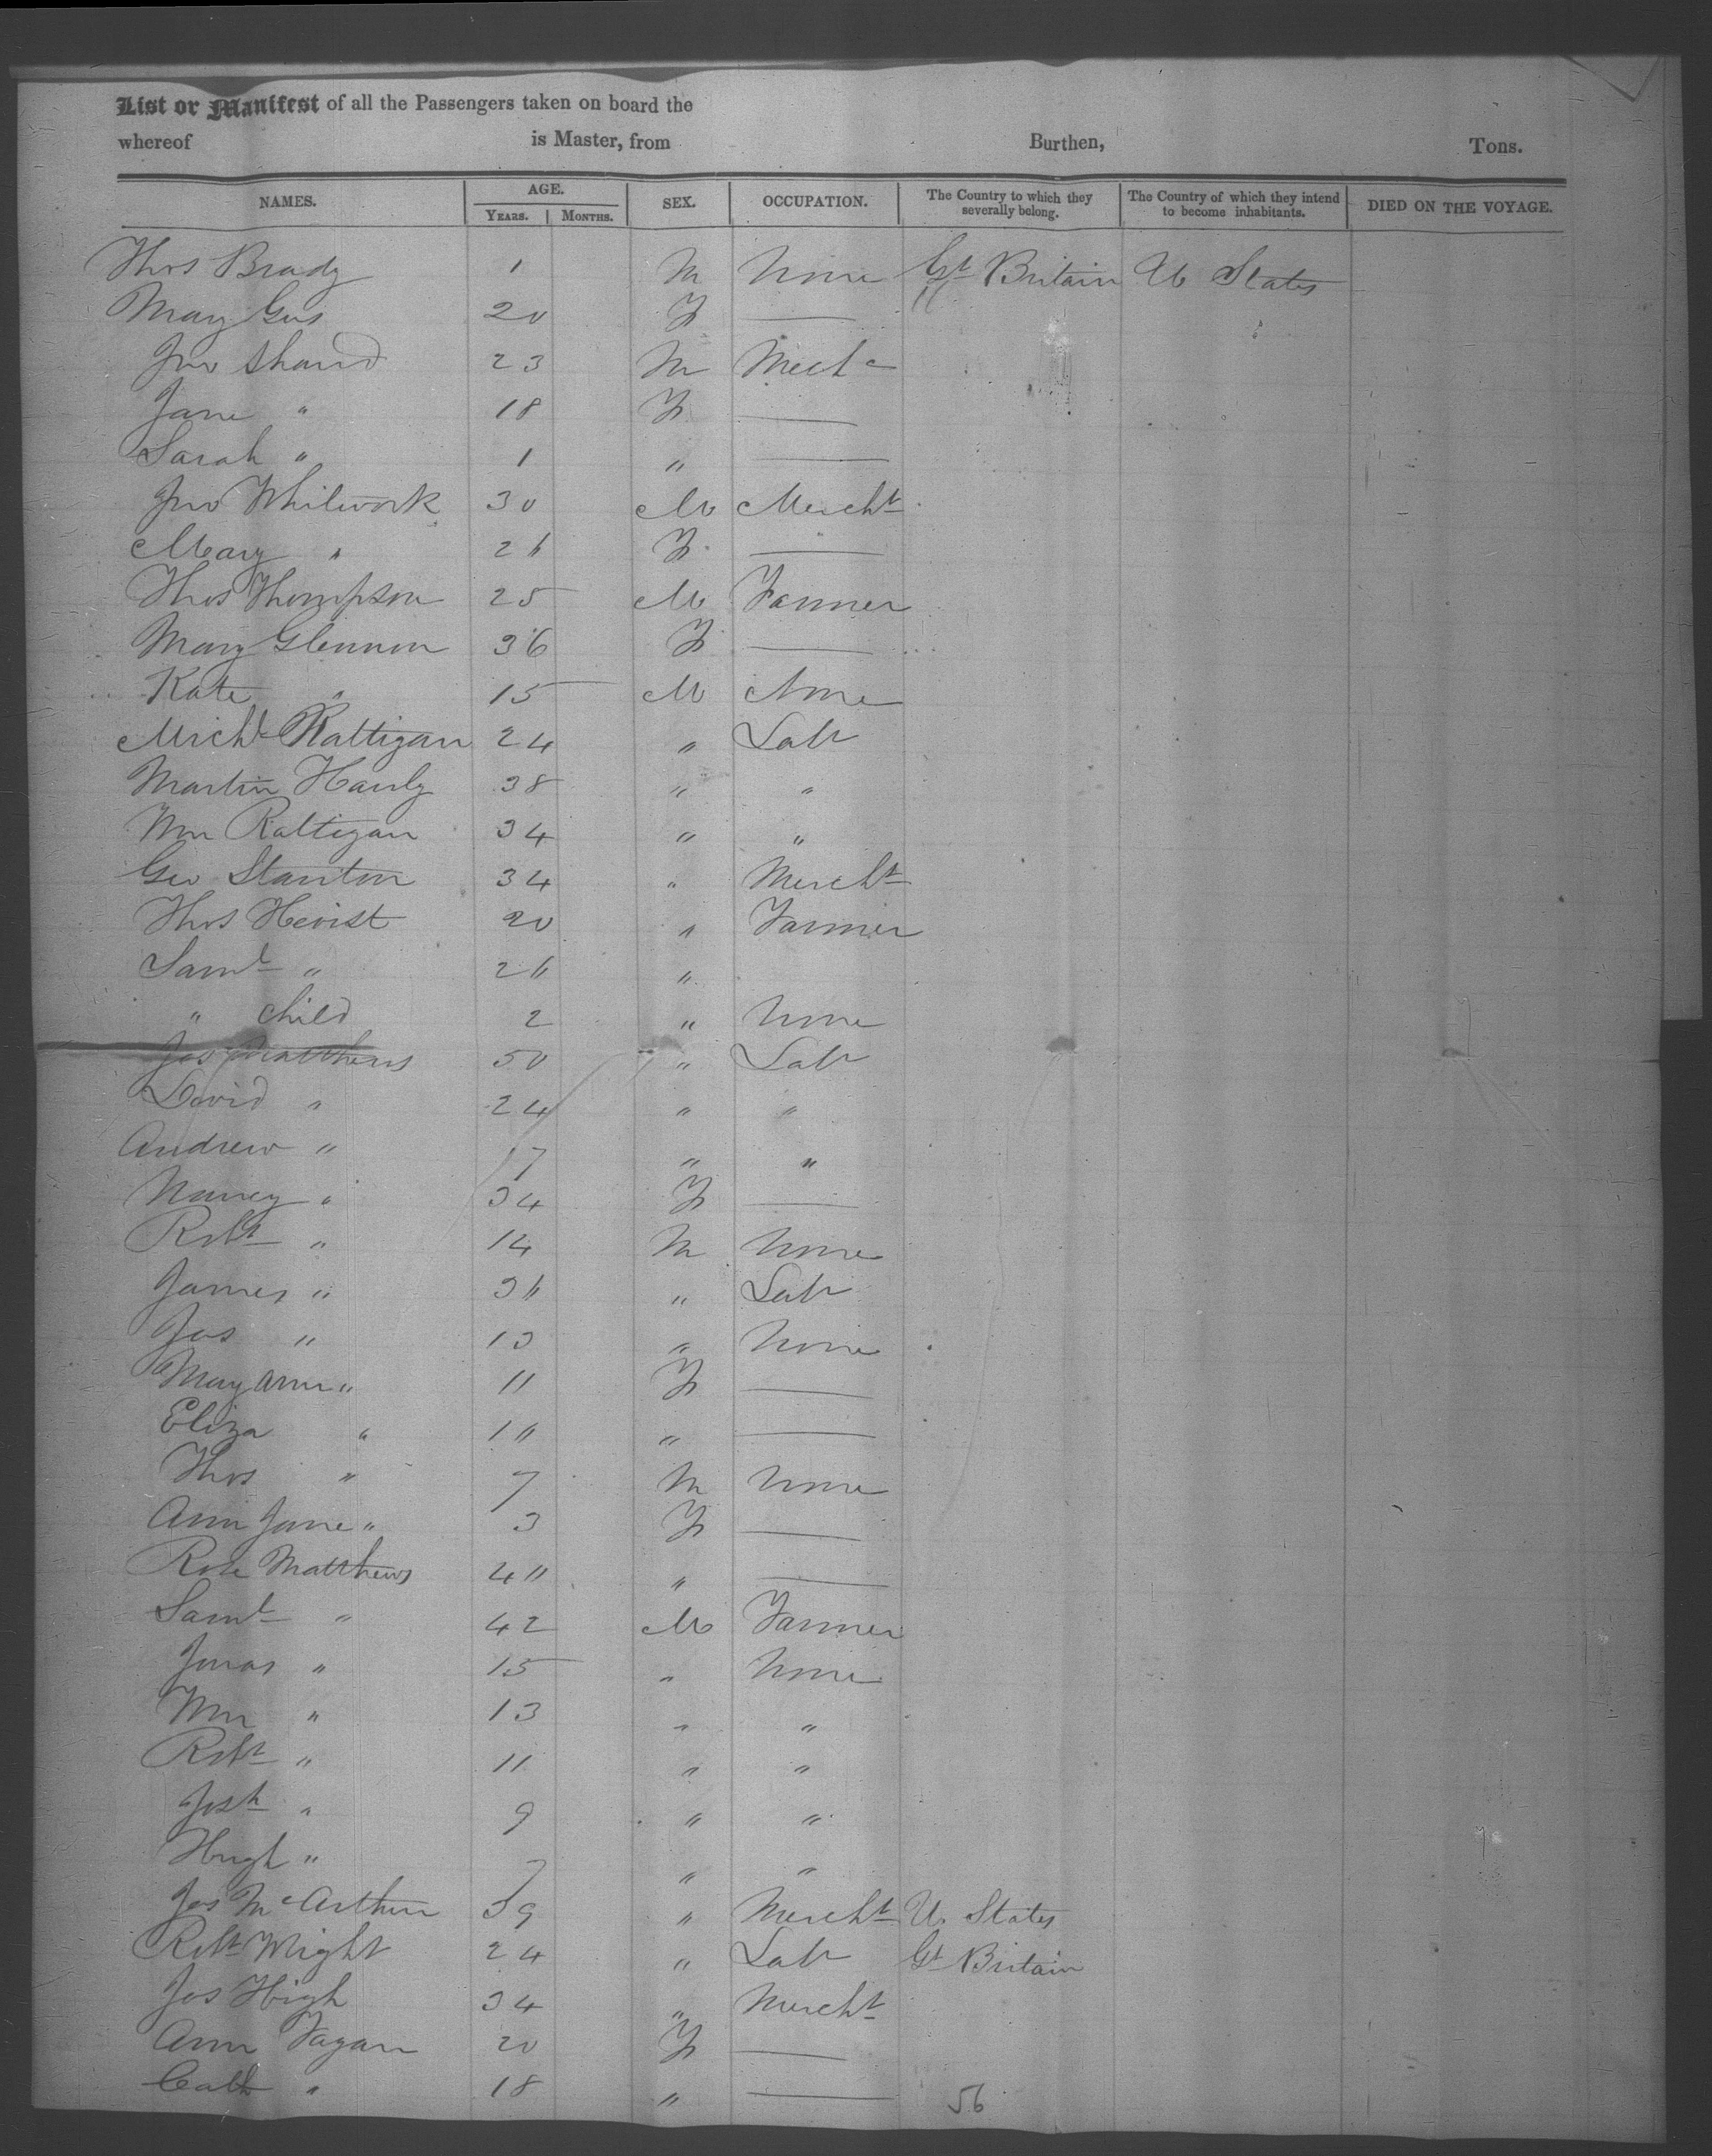 List or Manifest of all the Passengers taken on board the
whereof is Master, from Burthen, Tons.
NAMES. AGE. SEX. OCCUPATION. The Country to which they severally belong. The Country of which they intend to become inhabitants. DIED ON THE VOYAGE.
YEARS. MONTHS.
Thos Brady 1 M None Gt Britain U States
Mary Gus 20 F — "
Jno Shand 23 M Mechc
Jane " 18 F —
Sarah " 1 " —
Jno Whitwork 30 M Mercht
Mary " 26 F —
Thos Thompson 25 M Farmer
Mary Glennon 36 F —
Kate " 15 M None
Michl Rattigan 24 " Labr
Martin Hanly 38 " "
Wm Rattigan 34 " "
Geo Stanton 34 " Mercht
Thos Hevist 20 " Farmer
Saml " 26 "
" child 2 " None
Jas Matthews 50 " Labr
David " 24 " "
Andrew " 17 " "
Nancy " 34 F —
Robt " 14 M None
James " 36 " Labr
Jas " 13 " None
Mary Ann " 11 F —
Eliza " 10 " —
Thos " 7 M None
Ann Jane " 3 F —
Rose Matthews 40 " —
Saml " 42 M Farmer
Jonas " 15 " None
Wm " 13 " "
Robt " 11 " "
Josh " 9 " "
Hugh " 7 " "
Jas McArthur 39 " Mercht U. States
Robt Wright 24 " Labr Gt Britain
Jas High 34 " Mercht
Ann Fagan 20 F —
Cath " 18 " —
56